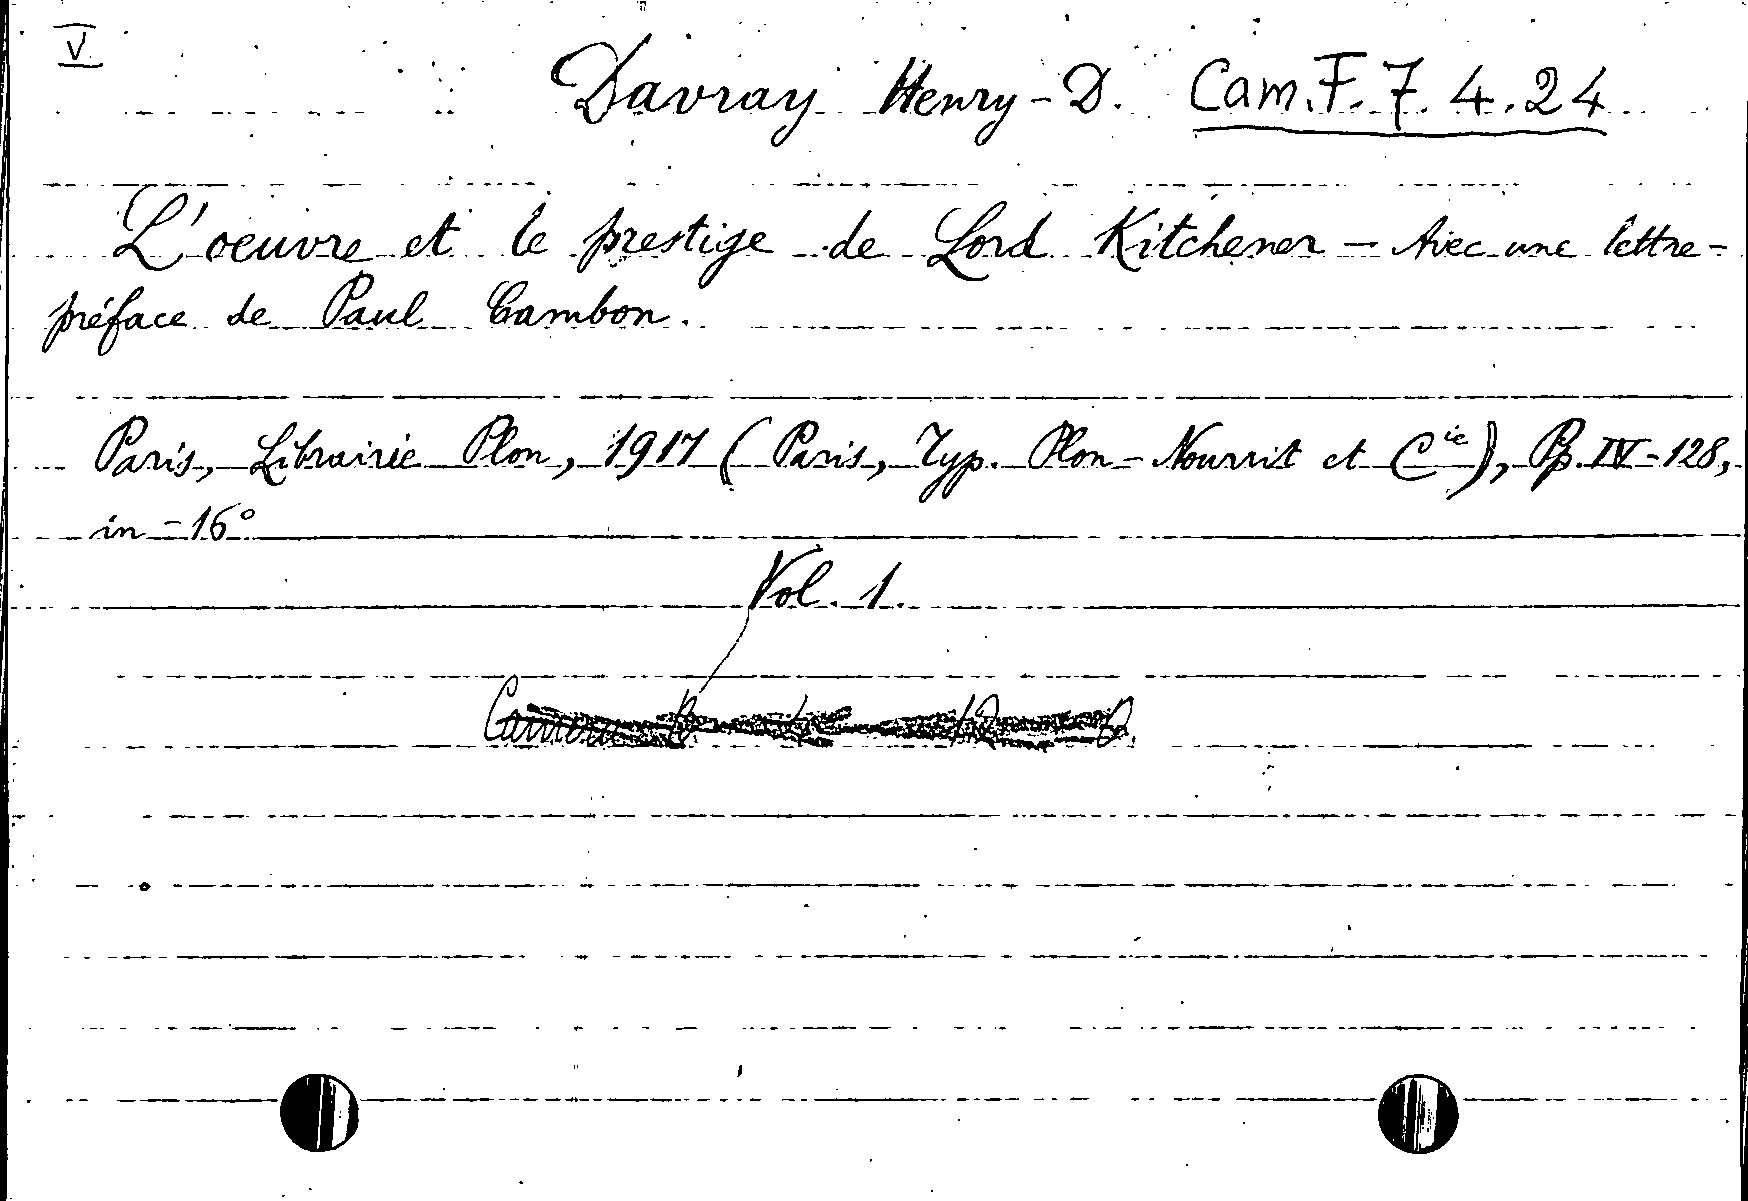 V
Davray Henry-D. Cam.F.7.4.24
L'oeuvre et le prestige de Lord Kitchener - Avec une lettre-
préface de Paul Cambon.
Paris, Librairie Plon, 1917 (Paris, Typ. Plon-Nourrit et Cie), Pp. IV-128,
in-16°
Vol. 1.
Camera